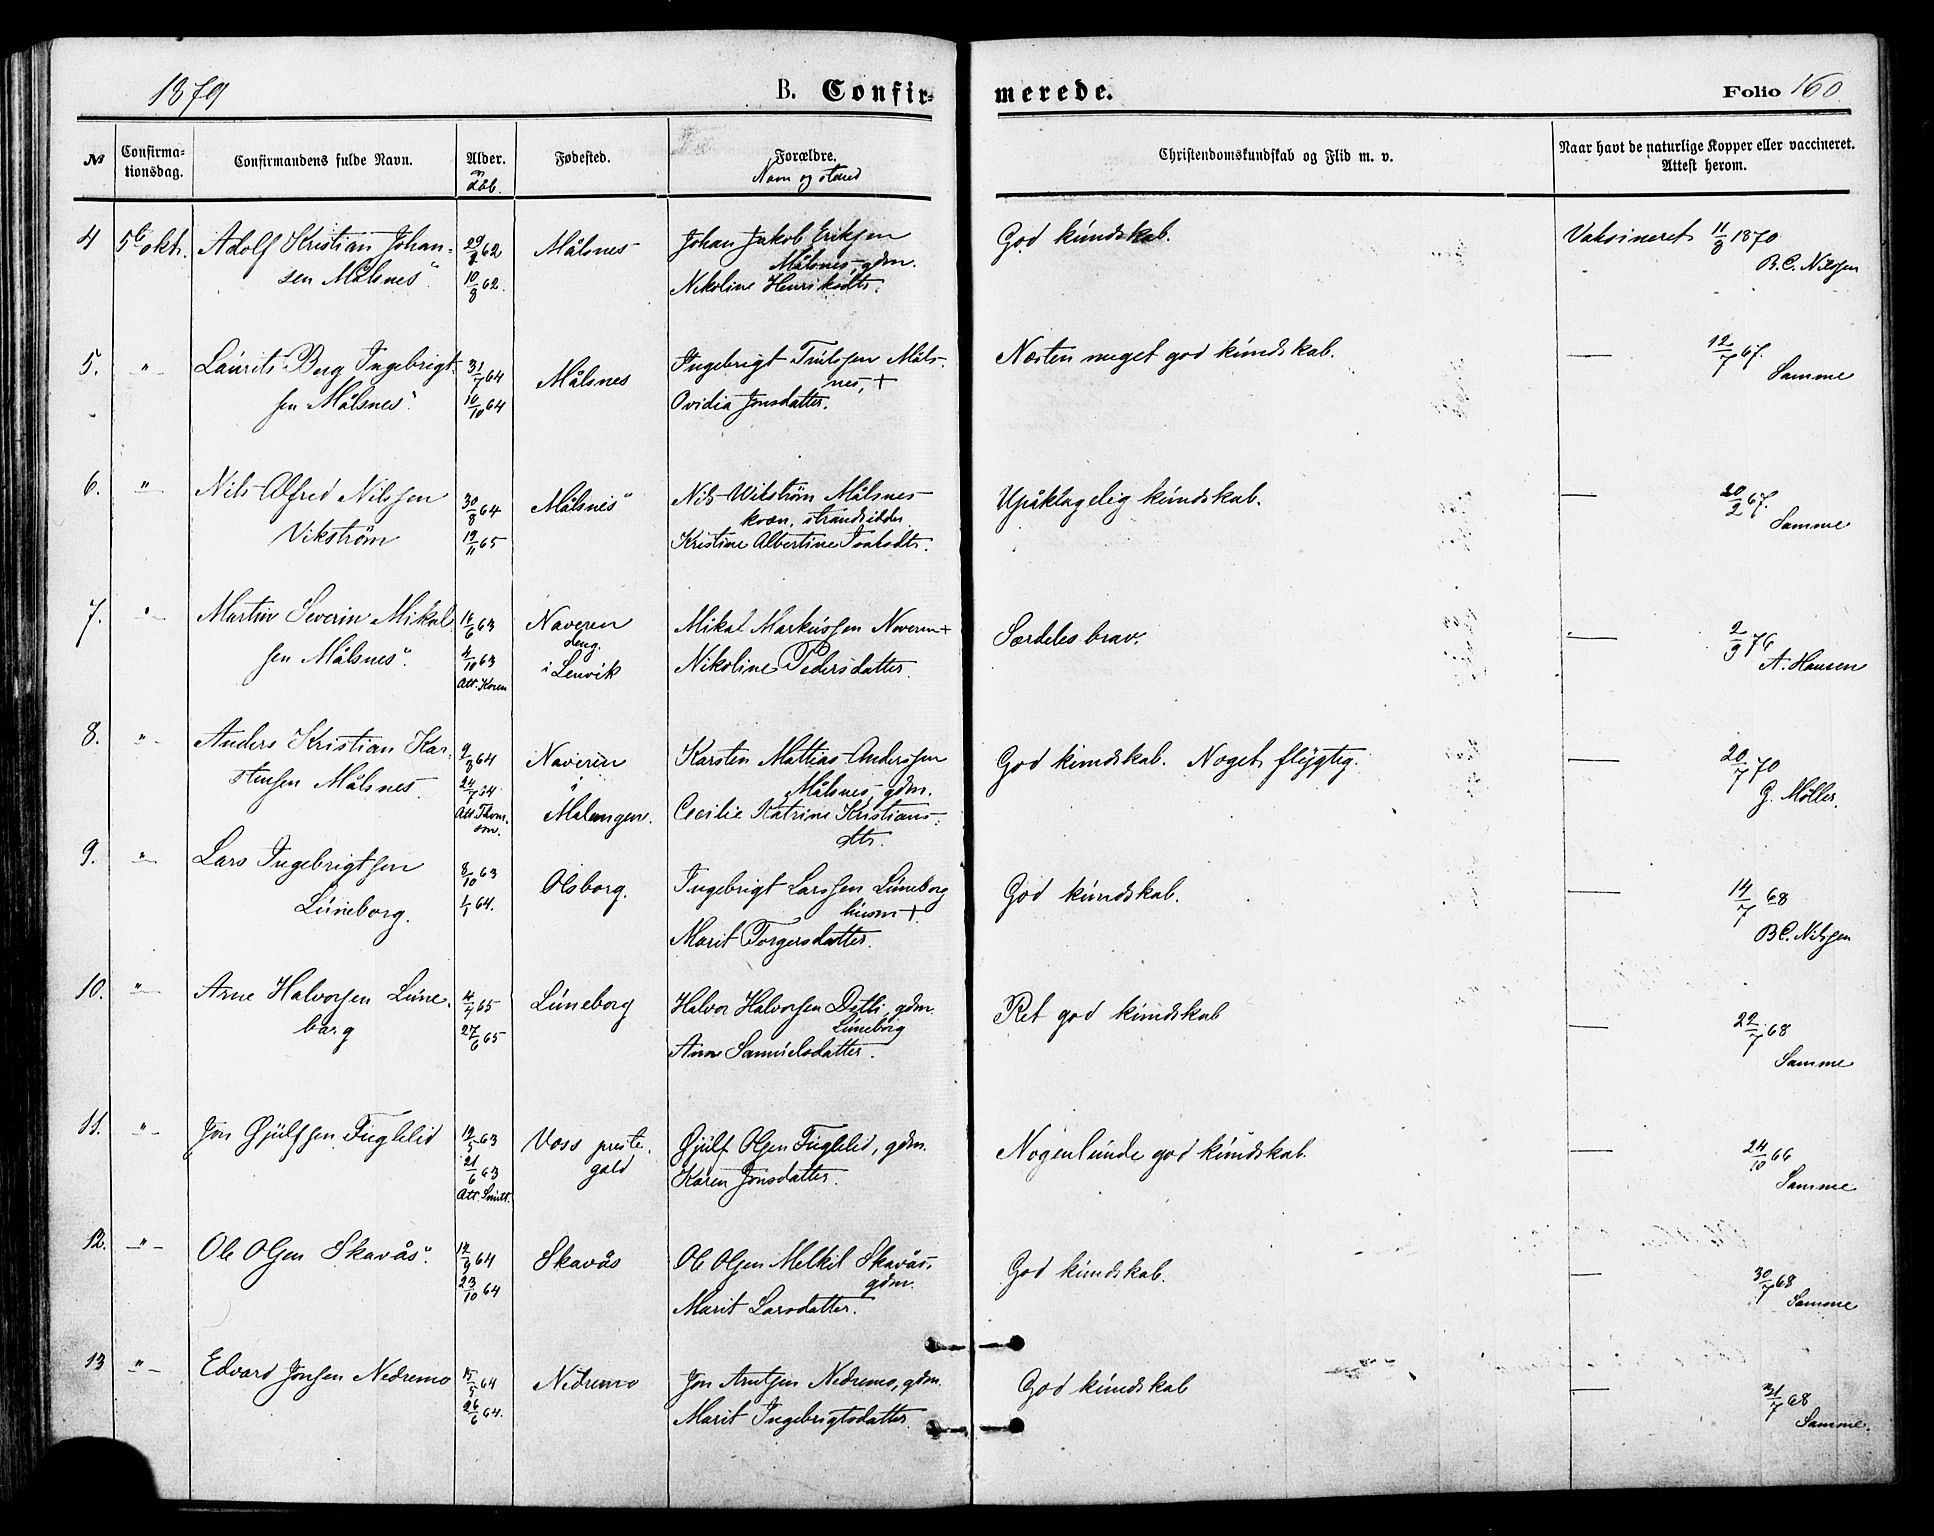 1879 B. Confir- merede. Folio 160
№ Confirma- tionsdag. Confirmandens fulde Navn. Alder. Fødested. Forældre. Christendomskundskab og Flid m. v. Naar havt de naturlige Kopper eller vaccineret. Attest herom.
Dåb. Navn og stand
4 5te okt. Adolf Kristian Johan- 29/3 62 Målsnes Johan Jakob Eriksen God kundskab. Vaksineret 11/8 1870
sen Målsnes 10/8 62. Målsnes, gdm. B.C. Nilssen
Nikoline Henriksdtr.
5. " Laurits Bug Ingebrigt- 31/7 64 Målsnes Ingebrigt Trulssen Måls- Næsten meget god kundskab. — 12/7 67.
sen Målsnes 16/10 64 nes, + Samme
Ovidia Jonsdatter.
6. " Nils Alfred Nilssen 30/8 64 Målsnes Nils Wikstrøm Målsnes Upåklagelig kundskab. — 20/2 67.
Vikstrøm 19/11 65 kvæn, strandsidder Samme
Kristine Albertine Isaksdtr.
7. " Martin Severin Mikal- 14/6 63 Naveren Mikal Markussen Naveren + Særdeles brav. — 2/9 76
sen Målsnes 4/10 63 i Lenvik Nikoline Pedersdatter A. Hansen
Att. Koren
8. " Anders Kristian Kar- 9/3 64 Naveren Karsten Mattias Anderssen God kundskab. Noget flygtig. — 20/7 70
stensen Målsnes 24/7 64 i Målsnes, gdm. G. Møller.
Att. Thom- son. Malangen. Cecilie Katrine Kristians-
dtr.
9. " Lars Ingebrigtsen 8/10 63 Olsborg. Ingebrigt Larssen Luneborg God kundskab. — 14/7 68
Luneborg. 1/1 64. husm + B.C. Nilssen
Marit Torgersdatter.
10. " Arne Halvorsen Lune- 4/4 65 Luneborg Halvor Halvorsen Dotli, gdm. Ret god kundskab — 22/7 68
borg 27/6 65 Luneborg Samme
Anne Samuelsdatter.
11. " Jon Gjulfsen Fuglelid 19/5 63 Voss preste- Gjulf Olsen Fuglelid, gdm. Nogenlunde god kundskab. — 24/10 66
21/6 63 gæld Karen Jonsdatter. Samme
Att. Smitt.
12. " Ole Olsen Skavås 14/9 64 Skavås Ole Olsen Melkil Skavås, God kundskab. — 30/7 68
23/10 64 gdm. Samme
Marit Larsdatter.
13 " Edvard Jonsen Nedremo 15/5 64 Nedremo Jon Arntsen Nedremo, gdm. God kundskab — 31/7 68
26/6 64. Marit Ingebrigtsdatter Samme.